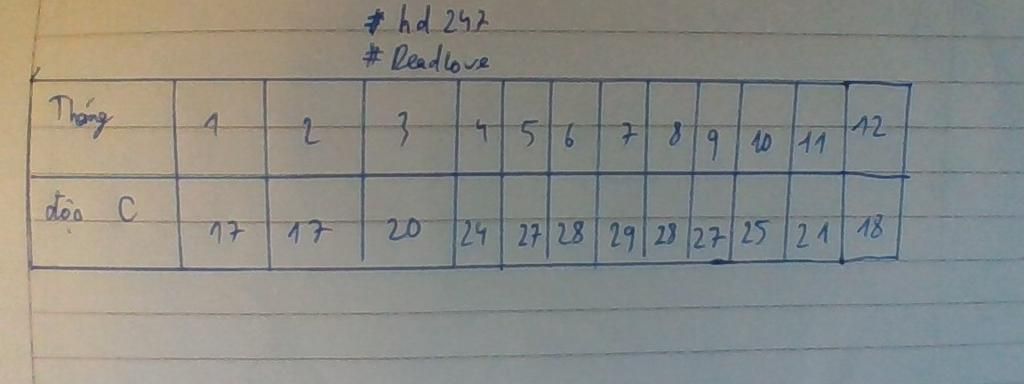 # hd 247
# ReadLove
Tháng 1 2 3 4 5 6 7 8 9 10 11 12
độ C 17 17 20 24 27 28 29 28 27 25 21 18